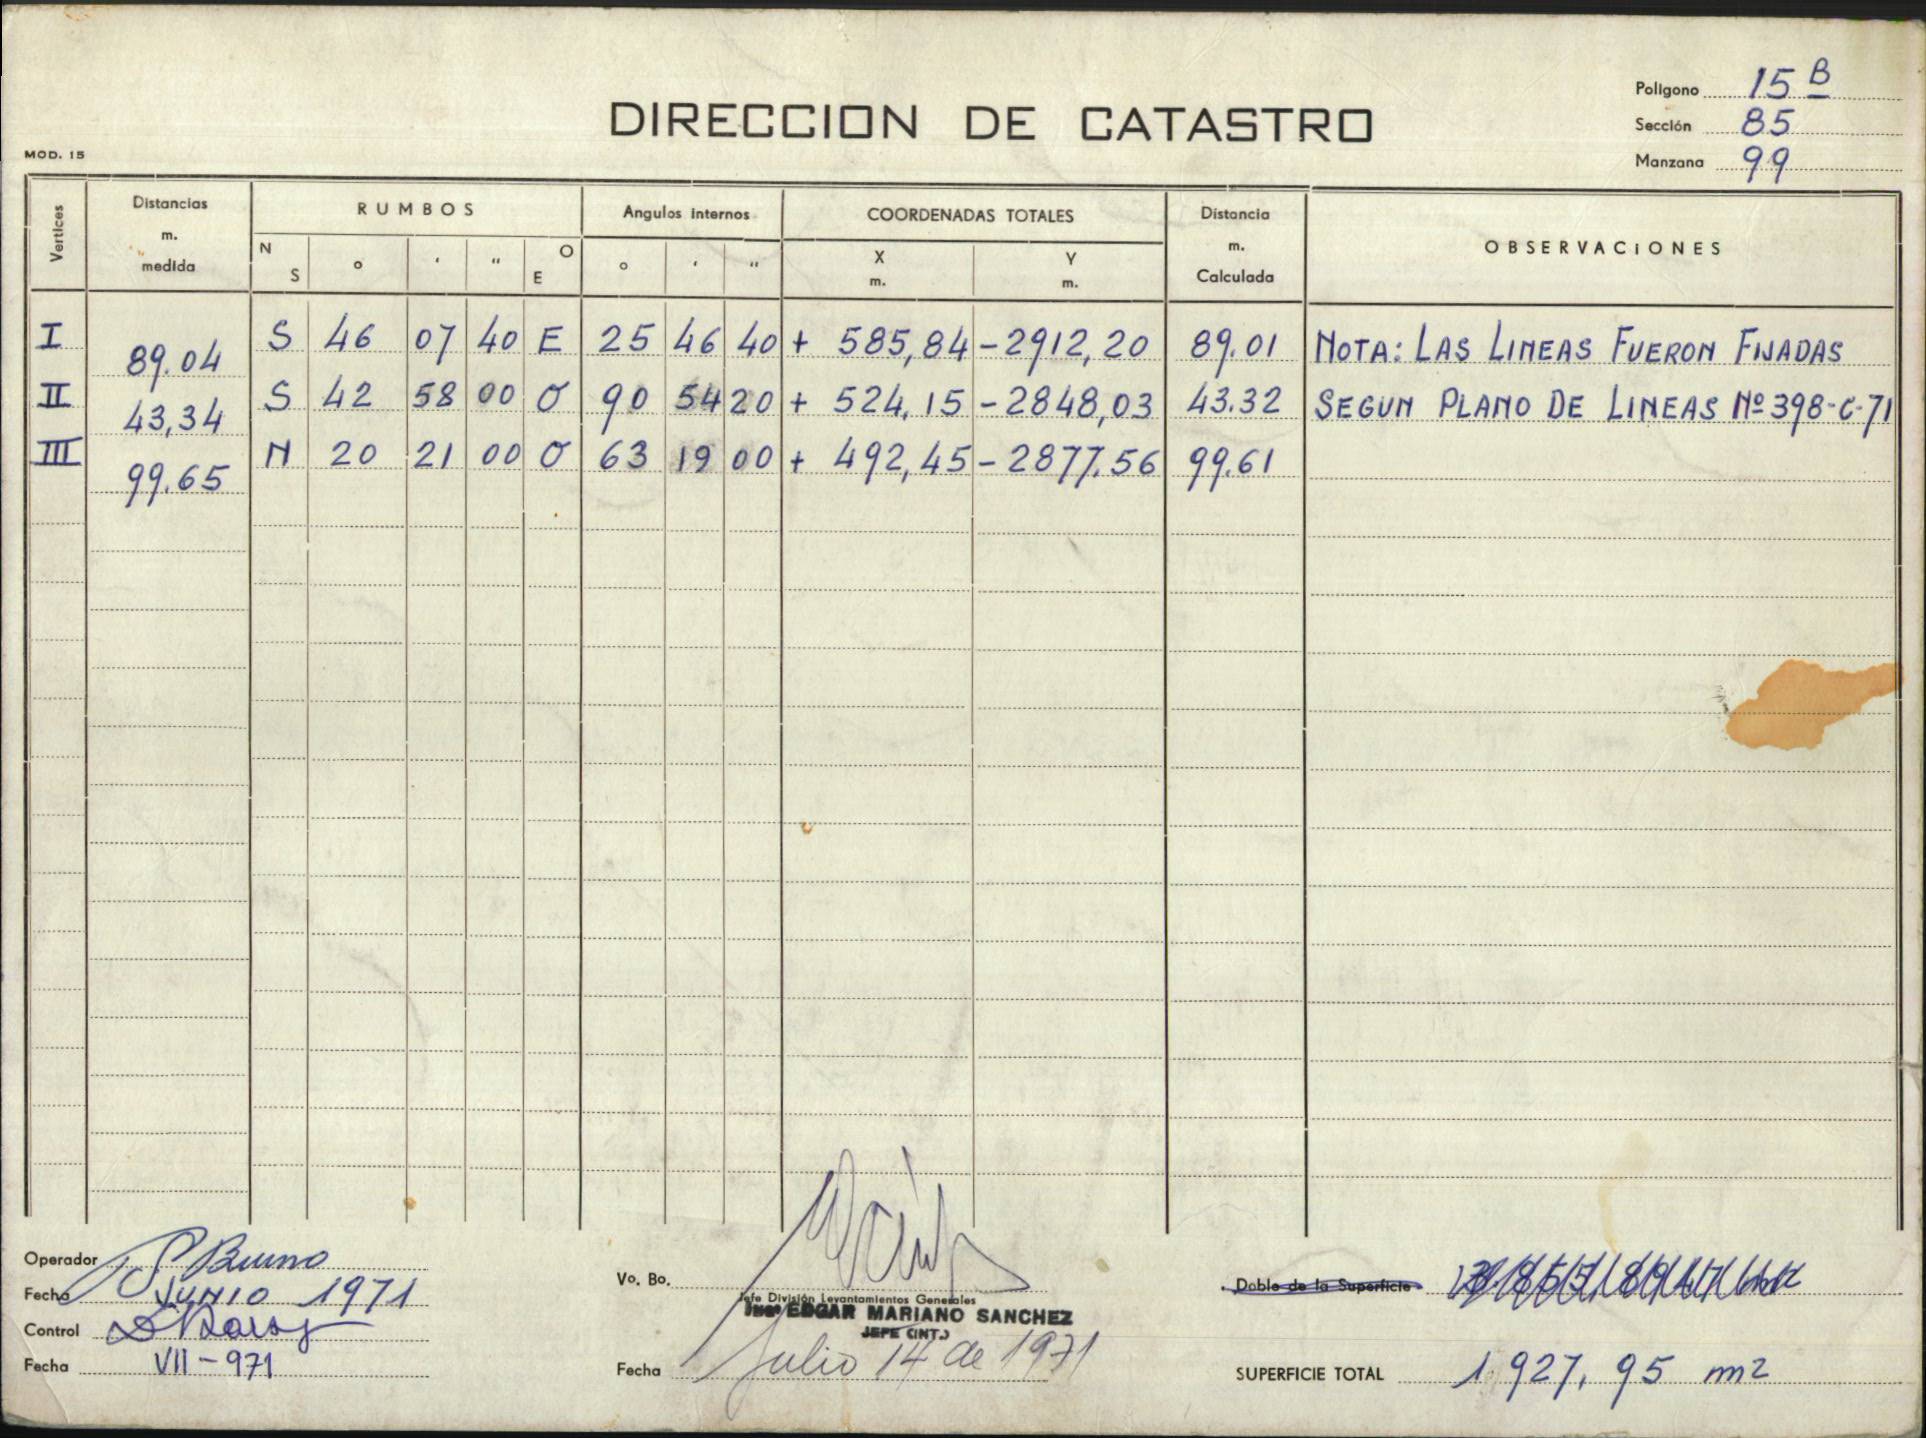 Poligono 15 B
DIRECCION DE CATASTRO
Sección 85
MOD. 15
Manzana 99
Vertices
Distancias m. medida
RUMBOS
Angulos internos
COORDENADAS TOTALES
Distancia m. Calculada
OBSERVACIONES
N S ° ' " O E ° ' " X m. Y m.
I 89.04 S 46 07 40 E 25 46 40 + 585,84 -2912,20 89.01 NOTA: LAS LINEAS FUERON FIJADAS
II 43,34 S 42 58 00 O 90 54 20 + 524,15 -2848,03 43.32 SEGUN PLANO DE LINEAS Nº 398-C-71
III 99.65 N 20 21 00 O 63 19 00 + 492,45 -2877,56 99.61
Operador S Bruno
Fecha JUNIO 1971
Control
Fecha VII-971
Vo. Bo.
Jefe División Levantamientos Generales
Ingº EDGAR MARIANO SANCHEZ
JEFE (INT.)
Fecha Julio 14 de 1971
Doble de la Superficie
SUPERFICIE TOTAL 1.927,95 m2